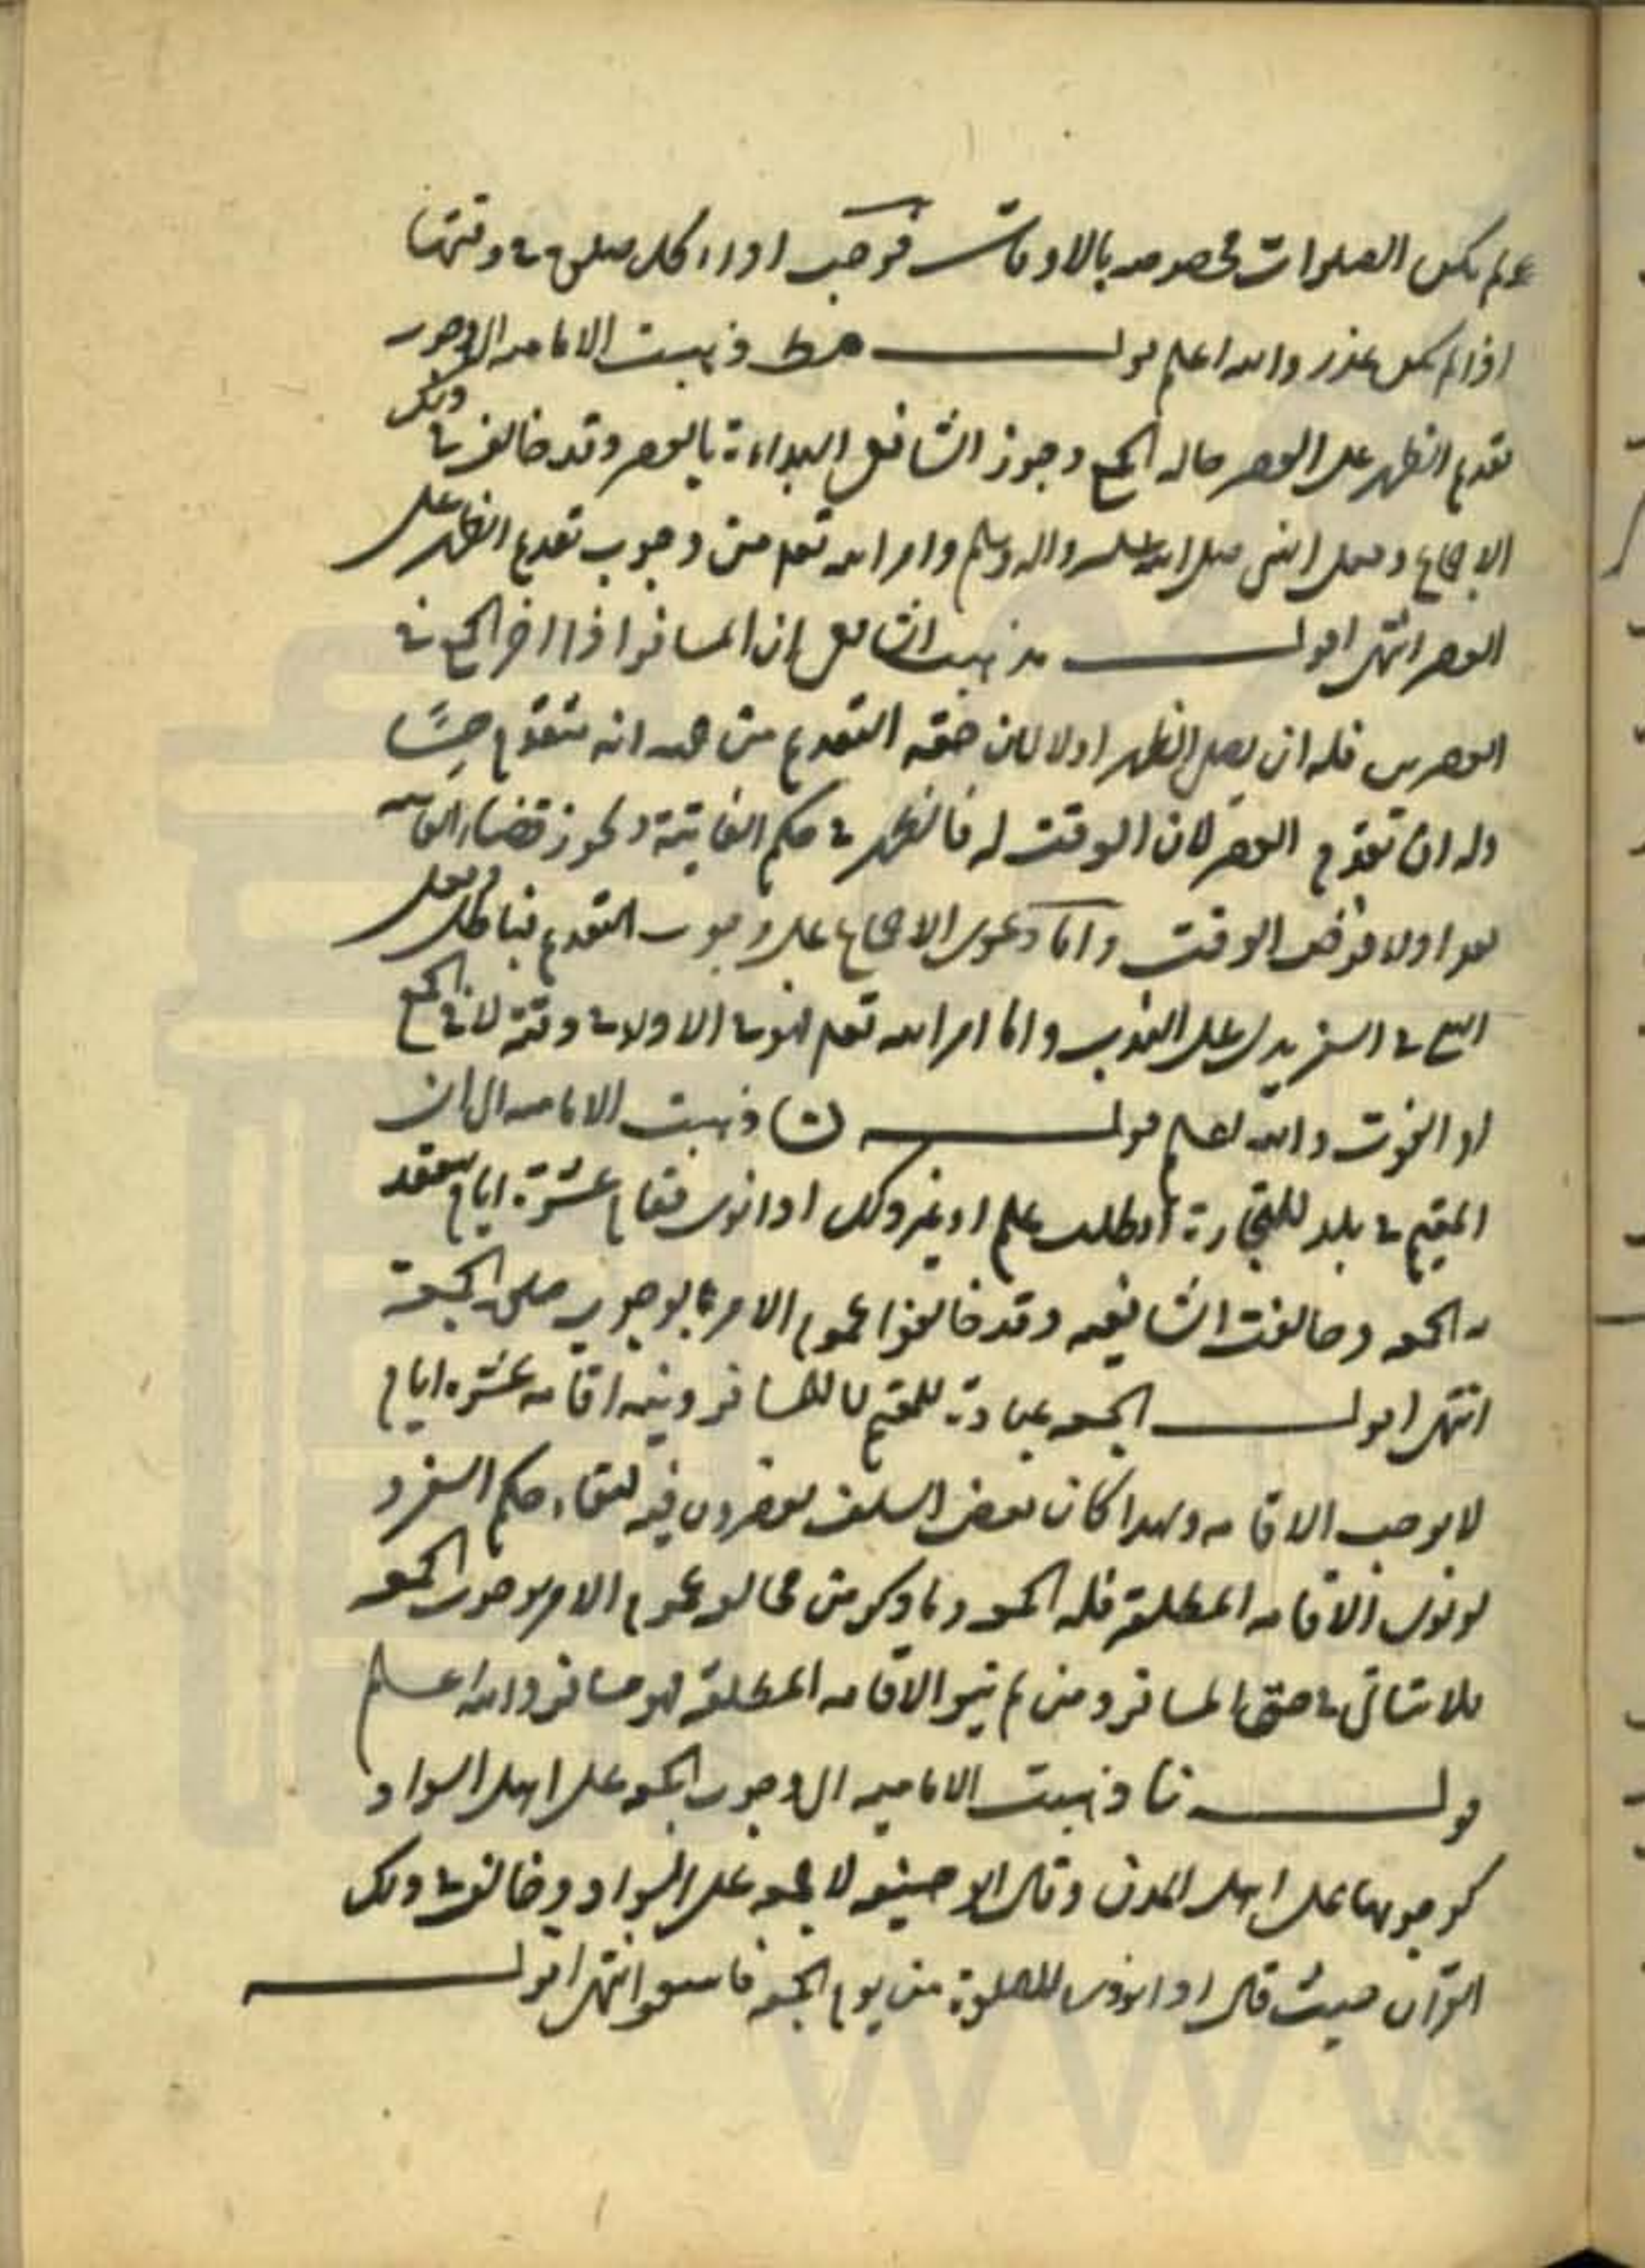 لم يكن الصلوات مخصوصه بالاوقات فوجب اداء كل صلوة في وقتها
اذا لم يكن عذر والله اعلم قولــه مط ذهبت الاماميه الى وجوب
تقديم الظهر على العصر حاله الجمع وجوز الشافعي البداءة بالعصر وقد خالف في ذلك
الاجماع وفعل النبي صلى الله عليه واله وسلم وامر الله تعم من وجوب تقديم الظهر على
العصر انتهى اقولــ مذهب الشافعي ان المسافر اذا اخر الجمع في
العصرين فله ان يصلي الظهر اولا لان حقه التقديم من جهه انه متقدم حسًا
وله ان تقدم العصر لان الوقت له فالظهر في حكم الفايتة ويجوز قضاء الفايته
بعد اولا فرض الوقت واما دعوى الاجماع على وجوب التقديم فباطل وفعل
النبي في السفر يدل على الندب واما امر الله تعم فهو في الاولا في وقته لا في الجمع
او الفوت والله اعلم قولــه ن ذهبت الاماميه الى ان
المقيم في بلد للتجارة او طلب علم او غير ذلك اذا نوى مقام عشرة ايام ينعقد
به الجمعه وخالفت الشافعيه وقد خالفوا عموم الامر بوجوب صلوة الجمعة
انتهى اقولــ الجمعه عبادة للمقيم لا للمسافر ونيه اقامه عشره ايام
لا يوجب الاقامه ولهذا كان بعض السلف يقصرون فيه لبقاء حكم السفر و
لو نوى الاقامه المطلقة فله الجمعه وما ذكر من مخالفه عموم الامر بوجوب الجمعه
فلا يتاتى في حق المسافر ومن لم ينو الاقامه المطلقة فهو مسافر والله اعلم
قولــه نا ذهبت الاماميه الى وجوب الجمعه على اهل السواد
كوجوبها على اهل المدن وقال ابو حنيفه لا جمعه على السواد وخالف في ذلك
القرآن حيث قال اذا نودي للصلوة من يوم الجمعه فاسعوا انتهى اقولــ